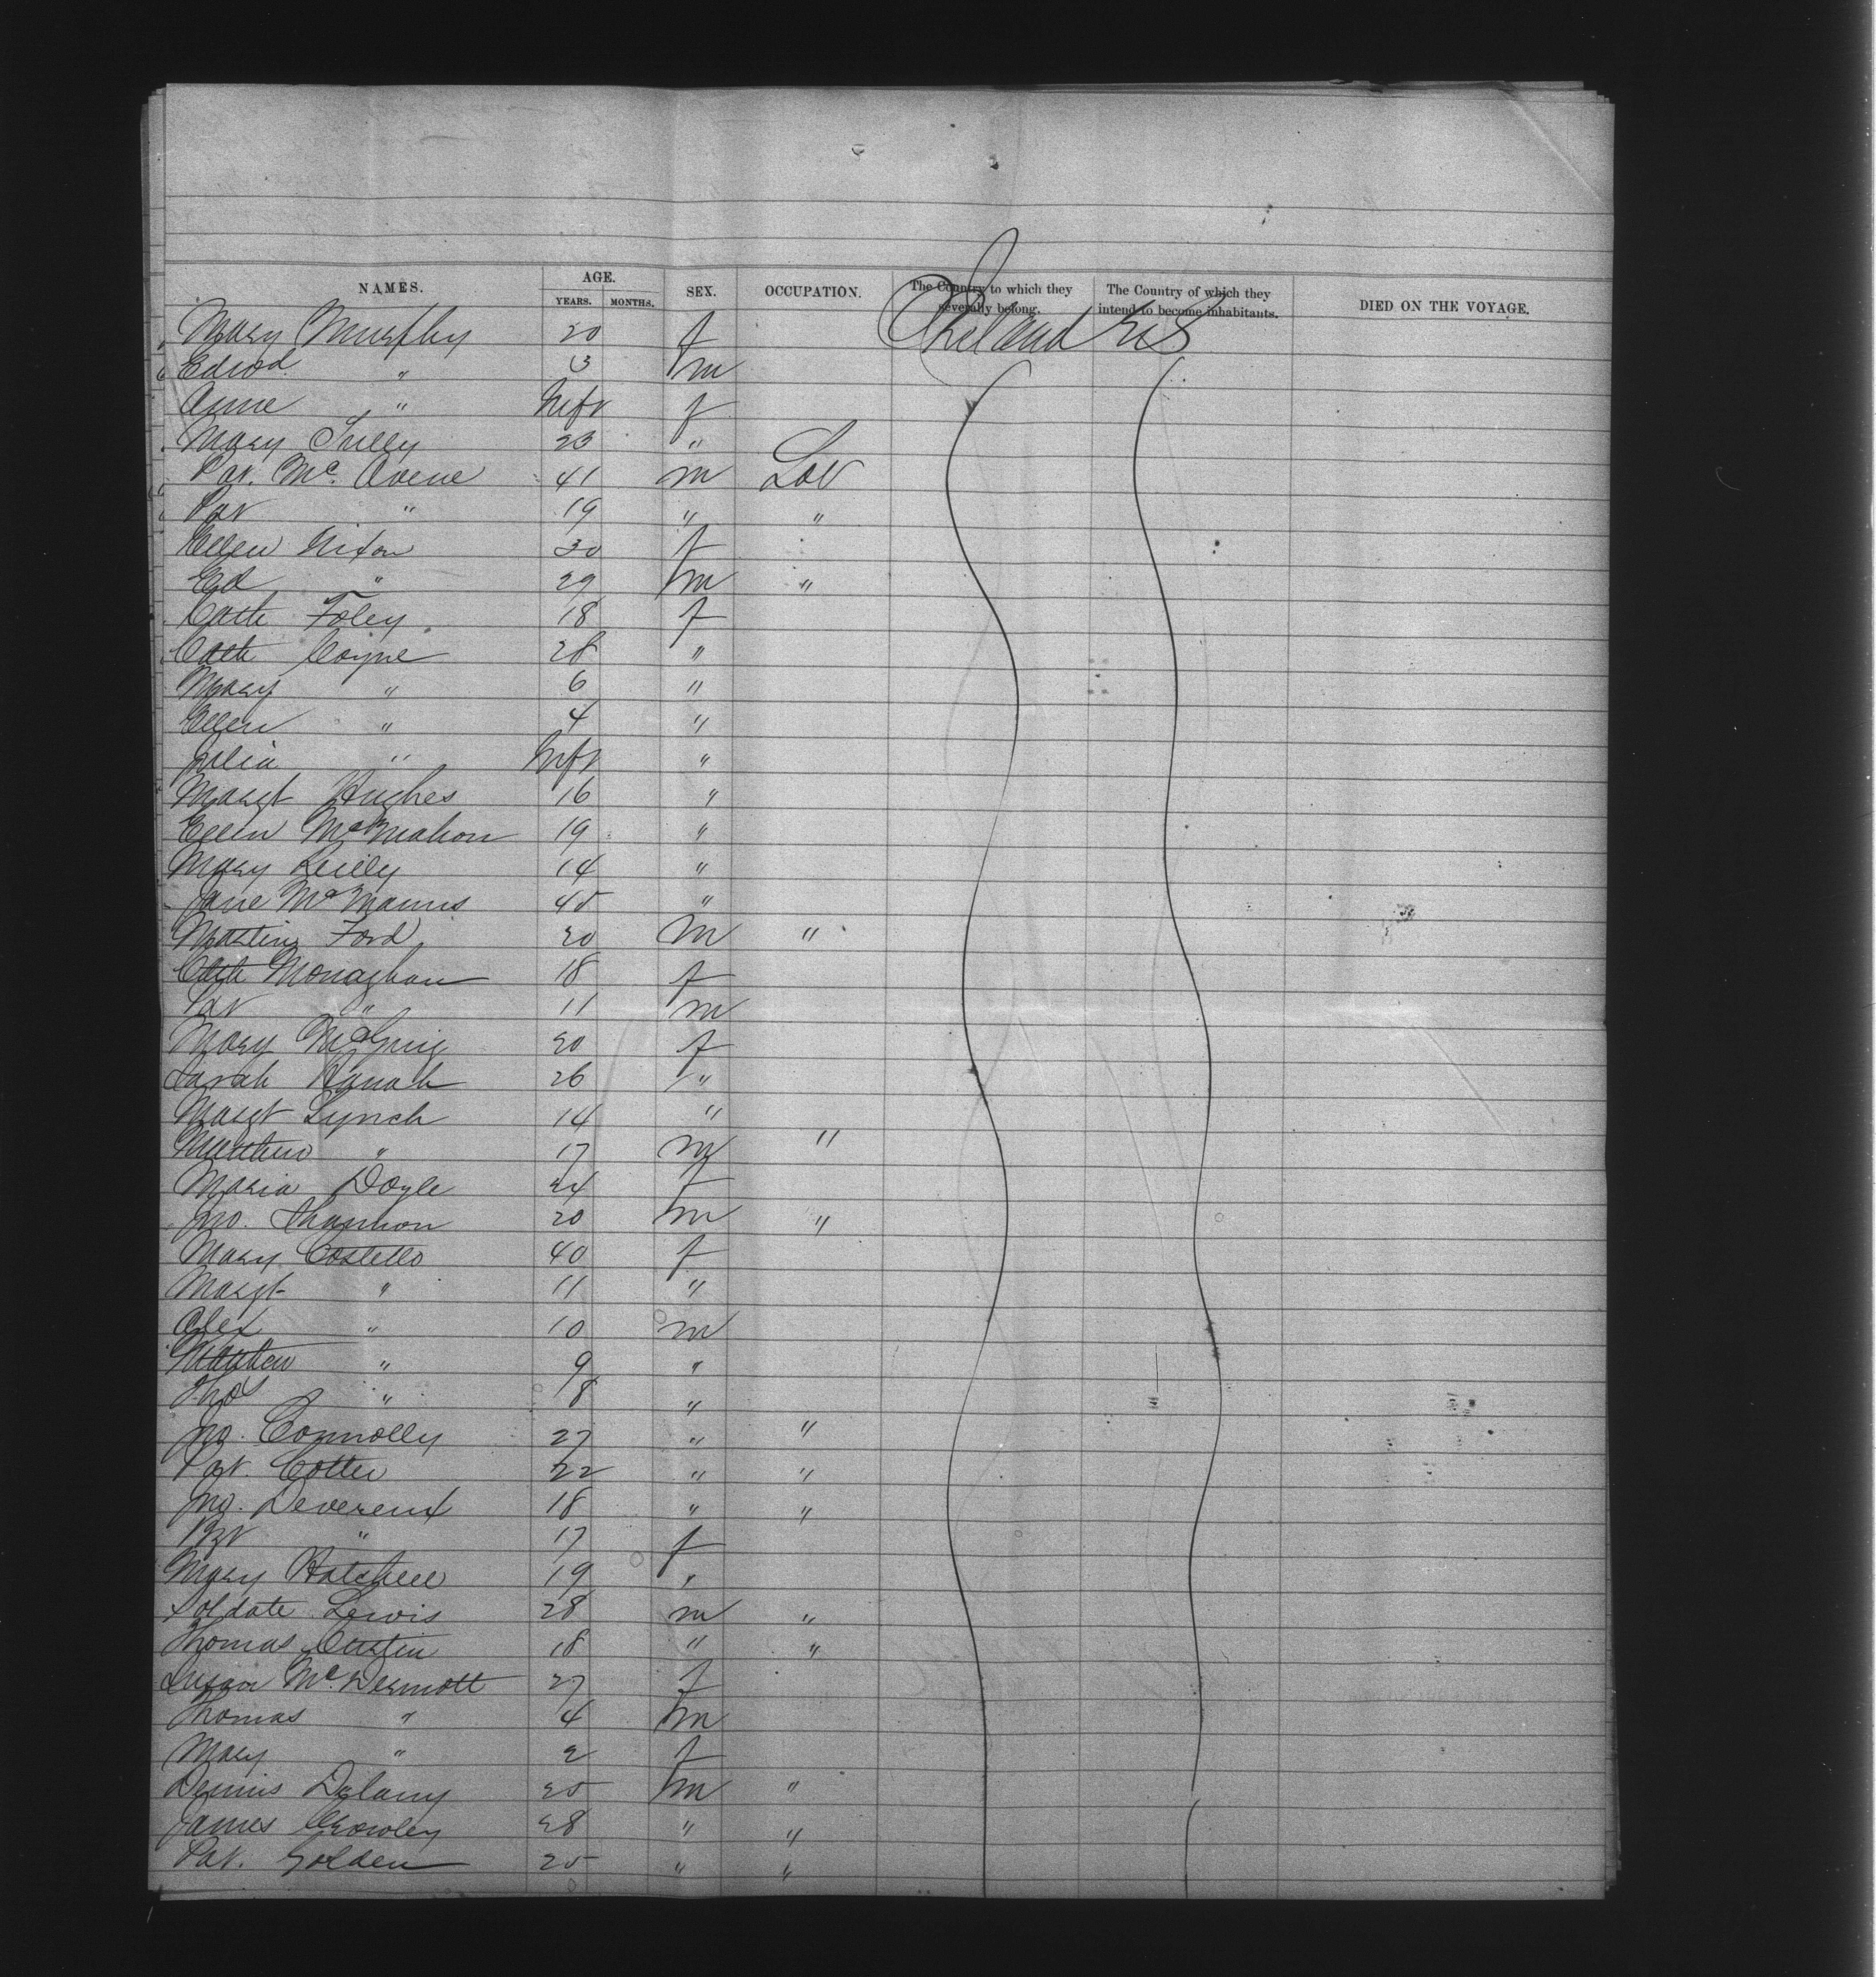 NAMES. AGE. YEARS. MONTHS. SEX. OCCUPATION. The Country to which they severally belong. The Country of which they intend to become inhabitants. DIED ON THE VOYAGE.
Mary Murphy 20 f Ireland U S
Edwd " 3 m
Anne " Inft f
Mary Tully 23 "
Pat. Mc. Avene 41 m Lab
Pat " 19 " "
Ellen Nixon 30 f
Ed " 29 m "
Cath Foley 18 f
Cath Coyne 28 "
Mary " 6 "
Ellen " 4 "
Julia " Inft "
Margt Hughes 16 "
Ellen McMahon 19 "
Mary Reilly 14 "
Jane McManus 45 "
Martin Ford 20 m "
Cath Monaghan 18 f
Pat " 11 m
Mary 20 f
Sarah Hanah 26 "
Margt Lynch 14 "
Matthew " 17 m "
Maria Doyle 24 f
Jno. Shannon 20 m "
Mary Costello 40 f
Margt " 11 "
Alex " 10 m
Matthew " 9 "
Thos " 8 "
Jno. Connolly 27 " "
Pat. Cotter 22 " "
Jno. Devereux 18 " "
Bgt " 17 f
Mary Hatchell 19 "
Soldate Lewis 28 m "
Thomas Austin 18 " "
Susan Mc.Dermott 27 f
Thomas " 4 m
Mary " 2 f
Dennis Delany 25 m "
James Crowley 28 " "
Pat. Golden 25 " "